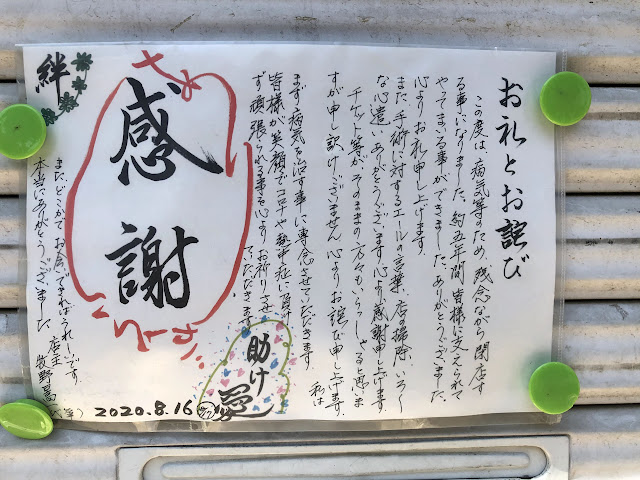 お礼とお詫び
この度は、病気等のため、残念ながら閉店す
る事になりました。約五年間、皆様に支えられて
やってまいる事ができました。ありがとうございました。
心よりお礼申し上げます。
また、手術に対するエールの言葉、店掃除、いろいろ
な心遣いありがとうございます。心より感謝申し上げます。
チケット等がそのままの方々もいらっしゃると思いま
すが申し訳ございません。心よりお詫び申し上げます。
私は
まず病気を治す事に専念させていただきます。
皆様が笑顔でコロナや熱中症に負け
ず頑張られる事を心よりお祈りさせ
ていただきます。
感謝
絆
助け愛
またどこかでお会いできればうれしいです。
本当にありがとうございました。
店主
牧野
2020.8.16